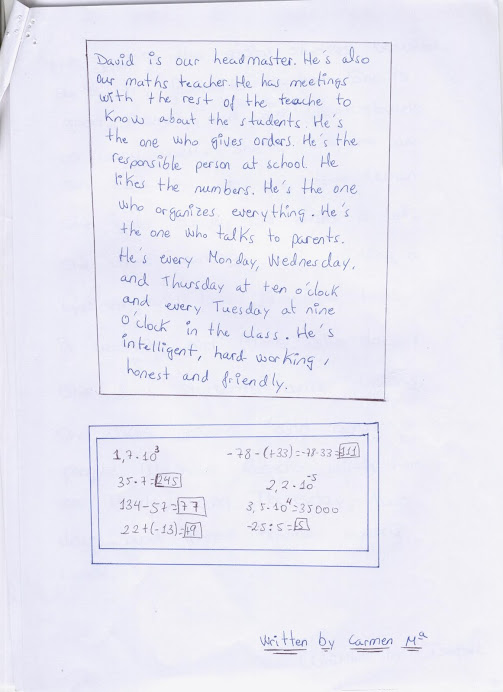 David is our headmaster. He's also
our maths teacher. He has meetings
with the rest of the teache to
Know about the students. He's
the one who gives orders. He's the
responsible person at school. He
likes the numbers. He's the one
who organizes everything. He's
the one who talks to parents.
He's every Monday, Wednesday,
and Thursday at ten o'clock
and every Tuesday at nine
o'clock in the class. He's
intelligent, hard working,
honest and friendly.
1,7·10³
35·7=245
134-57=77
22+(-13)=+9
-78-(+33)=-78-33=111
2,2·10⁻⁵
3,5·10⁴=35000
-25:5=5
Written by Carmen Mª